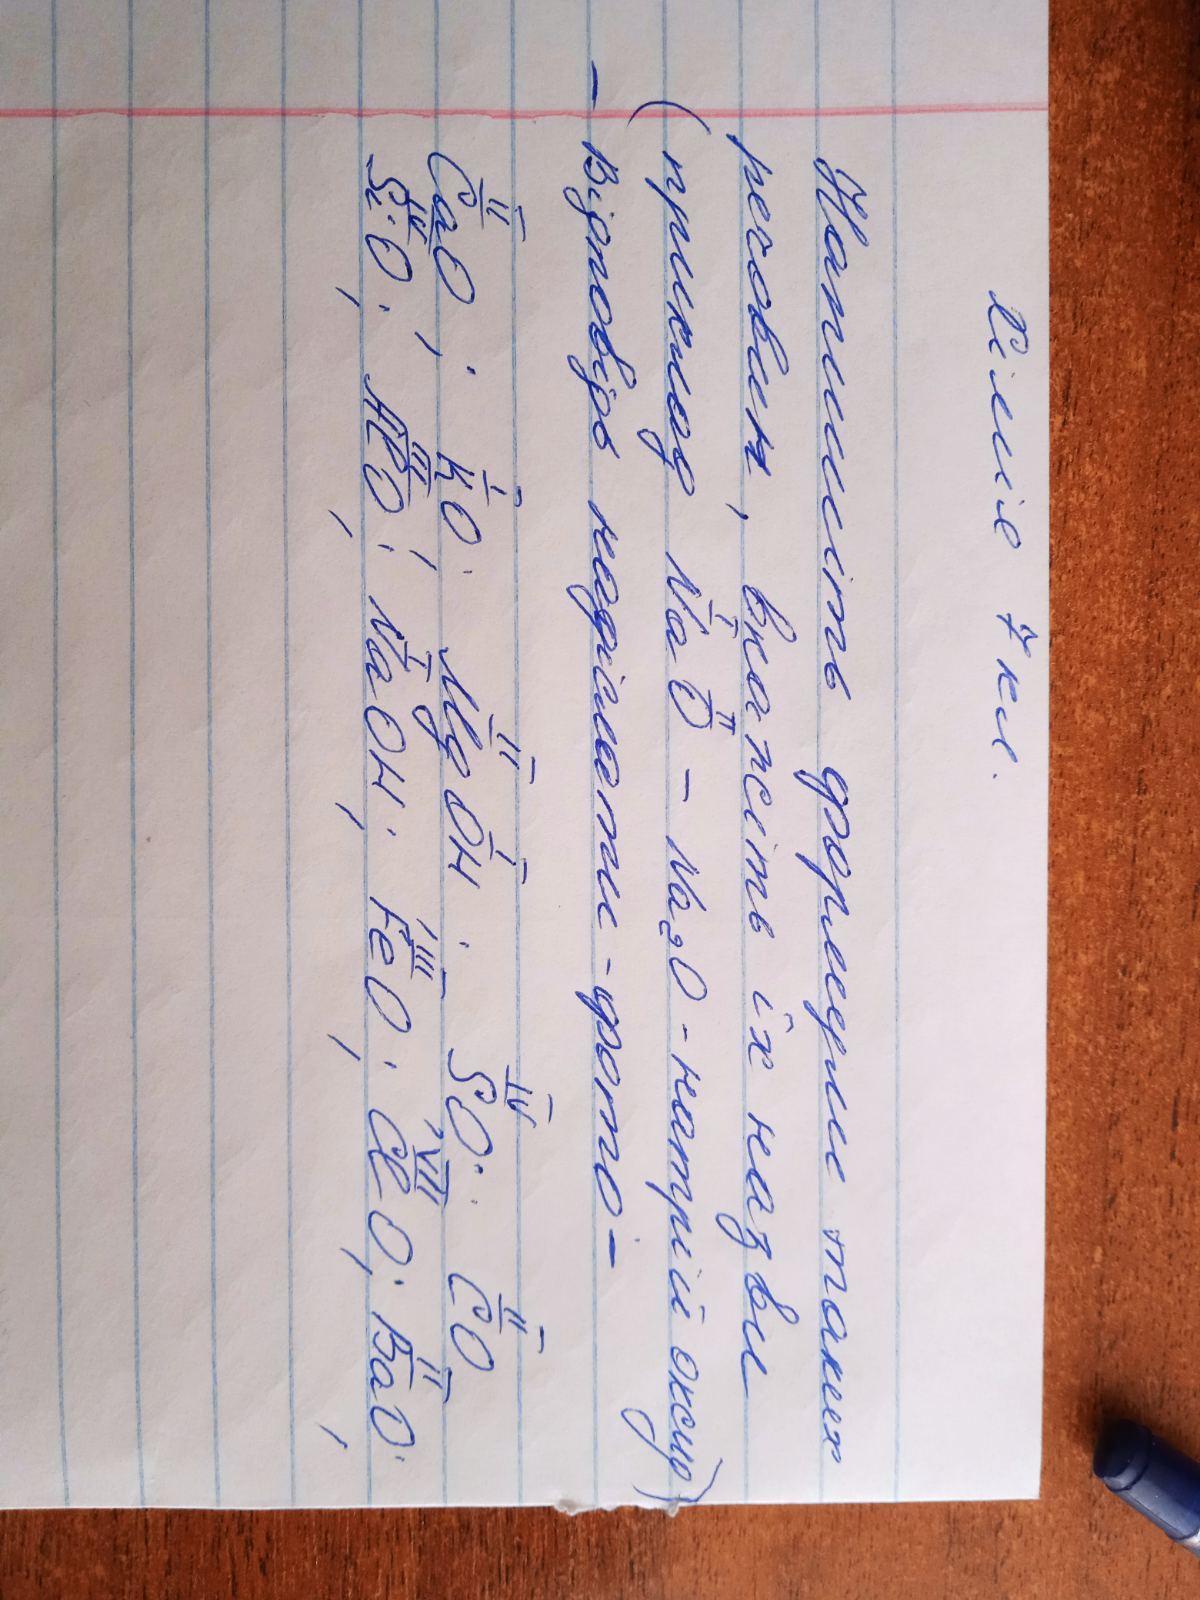 Хімія 7 кл.
Напишіть формули таких
речовин, вкажіть їх назви
(приклад Na^I O^II – Na₂O - натрій оксид)
– Відповідь надіслати - фото –
Ca^II O; K^I O; Mg^II OH^I; S^IV O; C^II O
Si^IV O; Al^III O; Na^I OH; Fe^III O; Cl^VII O; Ba^II O;